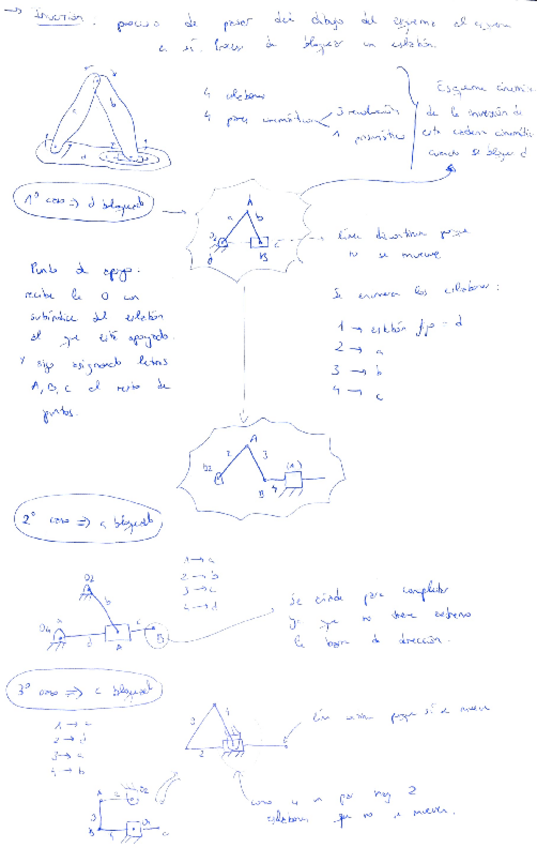 → Inversión. proceso de pasar del dibujo del esquema al esquema
en sí. Proceso de bloquear un eslabón.
4 eslabones
4 pares cinemáticos
3 revolución
1 prismático
Esquema cinemá.
de la inversión de
esta cadena cinemática
cuando se bloquea d
1º caso => d bloqueado
A
a b
O2
B
d
línea discontinua porque
no se mueve
Punto de apoyo.
recibe la O con
subíndice del eslabón
al que está apoyado.
Y sigo asignando letras
A, B, C al resto de
puntos.
Se enumeran los eslabones:
1 → eslabón fijo = d
2 → a
3 → b
4 → c
A
2 3
O2
B
4
(1)
2º caso => a bloqueado
1 → a
2 → b
3 → c
4 → d
O2
b
O4
a
d
A
c
B
Se añade para completar
ya que no tiene extremo
la barra de dirección.
3º caso => c bloqueado
1 → c
2 → d
3 → a
4 → b
3
4
2
línea continua porque sí se mueve
como 4 n por hay 2
eslabones que no se mueven.
A
3
B